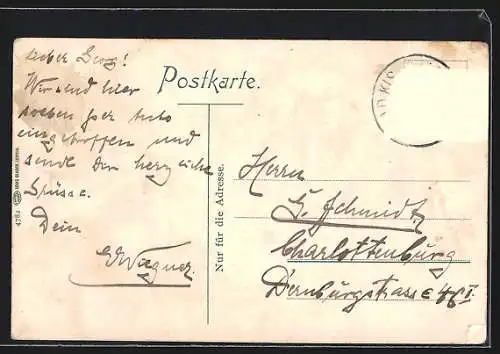 Lieber Georg!
Wir sind hier
soeben per Auto
eingetroffen und
sende Dir herzliche
Grüsse.
Dein
E Wagner.
Postkarte.
Nur für die Adresse.
4782
BAD KIS
Herrn
G. Schmidt
Charlottenburg
Dernburgstrasse 46 I.